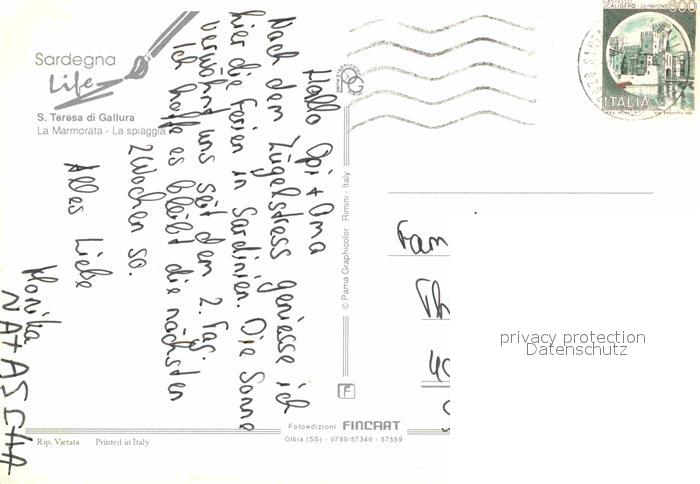 Sardegna
Life
S. Teresa di Gallura
La Marmorata - La spiaggia
Hallo Opi + Oma
Nach dem Zügelstress geniesse ich
hier die Ferien in Sardinien. Die Sonne
verwöhnt uns seit dem 2. Tag.
Ich hoffe es bleibt die nächsten
2 Wochen so.
Alles Liebe
Monika
NATASCHA
© Pama Graphicolor Rimini - Italy
F
Fotoedizioni FINCART
Olbia (SS) - 0789/57340 - 57559
Rip. Vietata Printed in Italy
600
ITALIA
Fam
privacy protection
Datenschutz